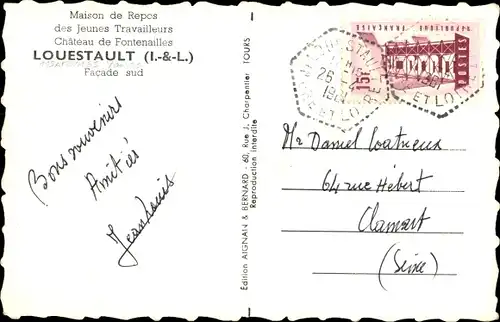 Maison de Repos
des Jeunes Travailleurs
Château de Fontenailles
LOUESTAULT (I.-&-L.)
Façade sud
Bons souvenirs
Amitiés
Jean Louis
Édition AIGNAN & BERNARD - 60, Rue J. Charpentier TOURS
Reproduction interdite
RÉPUBLIQUE FRANÇAISE
15F
POSTES
26
1961
ET LOIRE
Mr Daniel
64 rue Hébert
Clamart
(Seine)